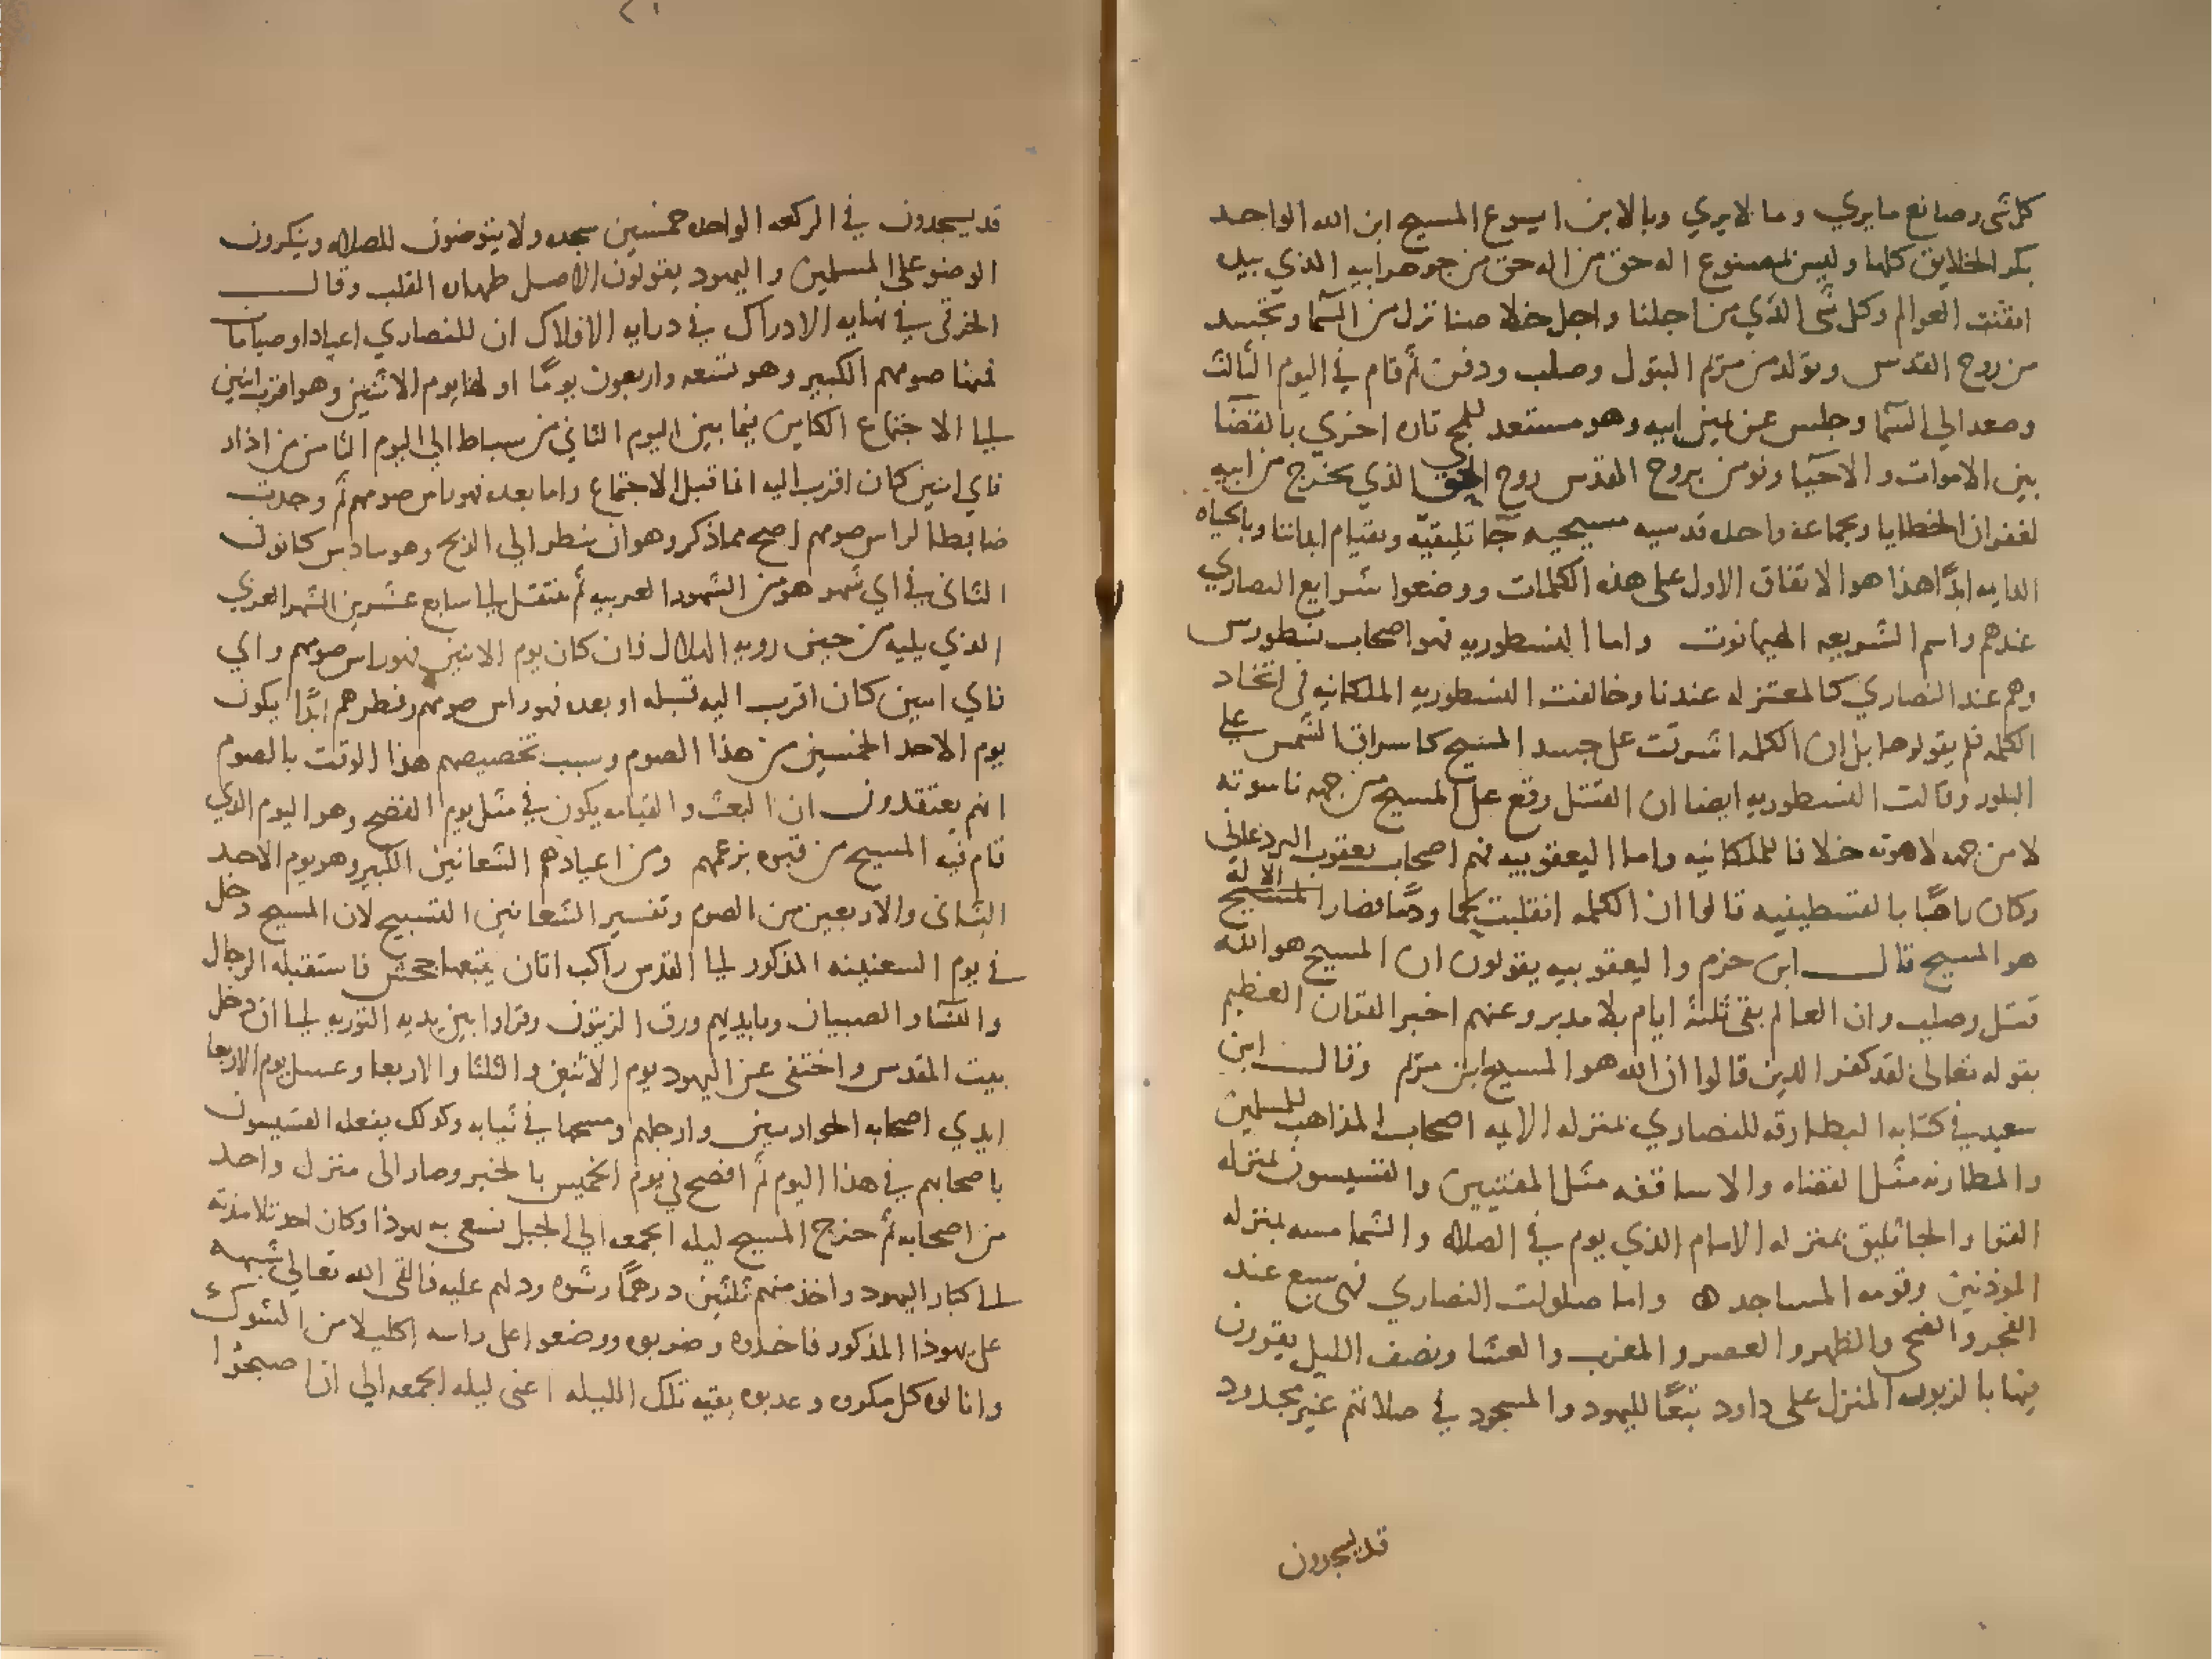 كل شي وصانع ما يري وما لا يري وبالابن ايسوع المسيح ابن الله الواحد
بكر الخلايق كلها وليس بمصنوع اله حق من اله حق من جوهر ابيه الذي بيده
اتقنت العوالم وكل شي الذي من اجلنا واجل خلاصنا نزل من السما وتجسد
من روح القدس وتولد من مريم البتول وصلب ودفن ثم قام في اليوم الثالث
وصعد الي السما وجلس عن يمين ابيه وهو مستعد للمجي تاره اخري بالقضا
بين الاموات والاحيا ونومن بروح القدس روح الحق الذي يخرج من ابيه
لغفران الخطايا وبجماعه واحده قدسيه مسيحيه جاثليقيه وبقيام ابداننا وبالحياه
الدايمه ابدًا هذا هو الاتفاق الاول علي هذه الكلمات ووضعوا شرايع النصاري
عندهم واسم الشريعه الهيمانوت واما النسطوريه فهو اصحاب نسطورس
وهم عند النصاري كالمعتزله عندنا وخالفت النسطوريه الملكانيه في اتخاد
الكلمه فلم يقولوها بل ان الكلمه اشرقت علي جسد المسيح كاسراق الشمس علي
البلور وقالت النسطوريه ايضا ان القتل وقع علي المسيح من جهه ناسوته
لا من جهه لاهوته خلافا للملكانيه واما اليعقوبيه فهم اصحاب يعقوب البردعاني
وكان راهبًا بالقسطيفيه قالوا ان الكلمه انقلبت لحما ودمًا فصار الاله المسيح
هو المسيح قال ابن حزم واليعقوبيه يقولون ان المسيح هو الله
قتل وصلب وان العالم بقي ثلثة ايام بلا مدبر وعنهم اخبر القران العظيم
بقوله تعالى لقد كفر الدين قالوا ان الله هو المسيح ابن مريم وقال ابن
سعيد في كتابه البطارقه للنصاري بمنزله الايمه اصحاب المذاهب للمسلمين
والمطارنه مثل القضاه والاساقفه مثل المفتيين والقسيسون بمنزله
القرا والجاثليق بمنزله الامام الذي يوم في الصلاه والشمامسه بمنزله
الموذنين وقومه المساجد ۞ واما صلوات النصاري فهي سبع عند
الفجر والضحي والظهر والعصر والمغرب والعشا ونصف الليل يقرون
فيها بالزبور المنزل علي داود تبعًا لليهود والسجود في صلاتهم غير محدود
قد يسجدون
٢١
قد يسجدون في الركعه الواحده خمسين سجده ولا يتوضون للصلاه وينكرون
الوضو علي المسلمين واليهود يقولون الاصل طهاره القلب وقال
الخرقي في نهايه الادراك في درايه الافلاك ان للنصاري اعيادا وصياما
فمنها صومهم الكبير وهو تسعه واربعون يومًا اولها يوم الاثنين وهو اقرب اثنين
الي الاجتماع الكاين فيما بين اليوم الثاني من سباط الي اليوم الثامن من اذار
فاي اثنين كان اقرب اليه اما قبل الاجتماع واما بعده فهو راس صومهم ثم وجدت
ضابطا لراس صومهم اصح مما ذكر وهو ان ينظر الي الذبح وهو سادس كانون
الثاني في اي شهر هو من الشهور العربيه ثم ينتقل الي سابع عشرين الشهر العربي
الذي يليه من حين رويه الهلال فان كان يوم الاثنين فهو راس صومهم والي
فاي اثنين كان اقرب اليه قبله او بعده فهو راس صومهم وفطرهم ابدًا يكون
يوم الاحد الخمسين من هذا الصوم وسبب تخصيصهم هذا الوقت بالصوم
انهم يعتقدون ان البعث والقيامه يكون في مثل يوم الفصح وهو اليوم الذي
قام فيه المسيح من قبره بزعمهم ومن اعيادهم الشعانين الكبير وهو يوم الاحد
الثاني والاربعين من الصوم وتفسير الشعانين التسبيح لان المسيح دخل
في يوم السعنينه المذكور الي القدس راكب اتان يتبعها جحش فاستقبله الرجال
والنسا والصبيان وبايديهم ورق الزيتون وقراوا بين يديه التوريه الي ان دخل
بيت المقدس واختفي عن اليهود يوم الاثنين والثلثا والاربعا وغسل يوم الاربعا
ايدي اصحابه الحواريين وارجلهم ومسحها في ثيابه وكذلك يفعله القسيسون
باصحابهم في هذا اليوم ثم افصح في يوم الخميس بالخبر وصار الى منزل واحد
من اصحابه ثم خرج المسيح ليله الجمعه الي الجبل فسعي به يهوذا وكان احد تلامذته
الي كبار اليهود واخذ منهم ثلثين درهمًا رشوه ودلهم عليه فالقي الله تعالي شبهه
علي يهوذا المذكور فاخذوه وضربوه ووضعوا علي راسه اكليلا من الشوك
وانالوه كل مكروه وعذبوه بقيه تلك الليله اعني ليله الجمعه الي ان اصبحوا